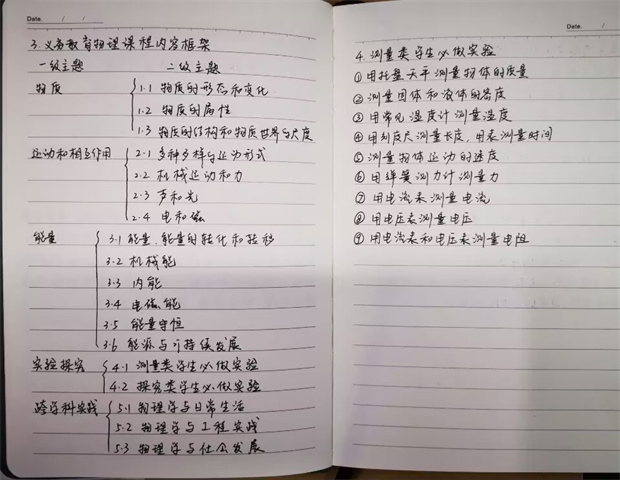 Date. / /
3. 义务教育物理课程内容框架
一级主题 二级主题
物质 1.1 物质的形态和变化
1.2 物质的属性
1.3 物质的结构和物质世界的尺度
运动和相互作用 2.1 多种多样的运动形式
2.2 机械运动和力
2.3 声和光
2.4 电和磁
能量 3.1 能量、能量的转化和转移
3.2 机械能
3.3 内能
3.4 电磁能
3.5 能量守恒
3.6 能源与可持续发展
实验探究 4.1 测量类学生必做实验
4.2 探究类学生必做实验
跨学科实践 5.1 物理学与日常生活
5.2 物理学与工程实践
5.3 物理学与社会发展
Date. /
4. 测量类学生必做实验
① 用托盘天平测量物体的质量
② 测量固体和液体的密度
③ 用常见温度计测量温度
④ 用刻度尺测量长度、用表测量时间
⑤ 测量物体运动的速度
⑥ 用弹簧测力计测量力
⑦ 用电流表测量电流
⑧ 用电压表测量电压
⑨ 用电流表和电压表测量电阻